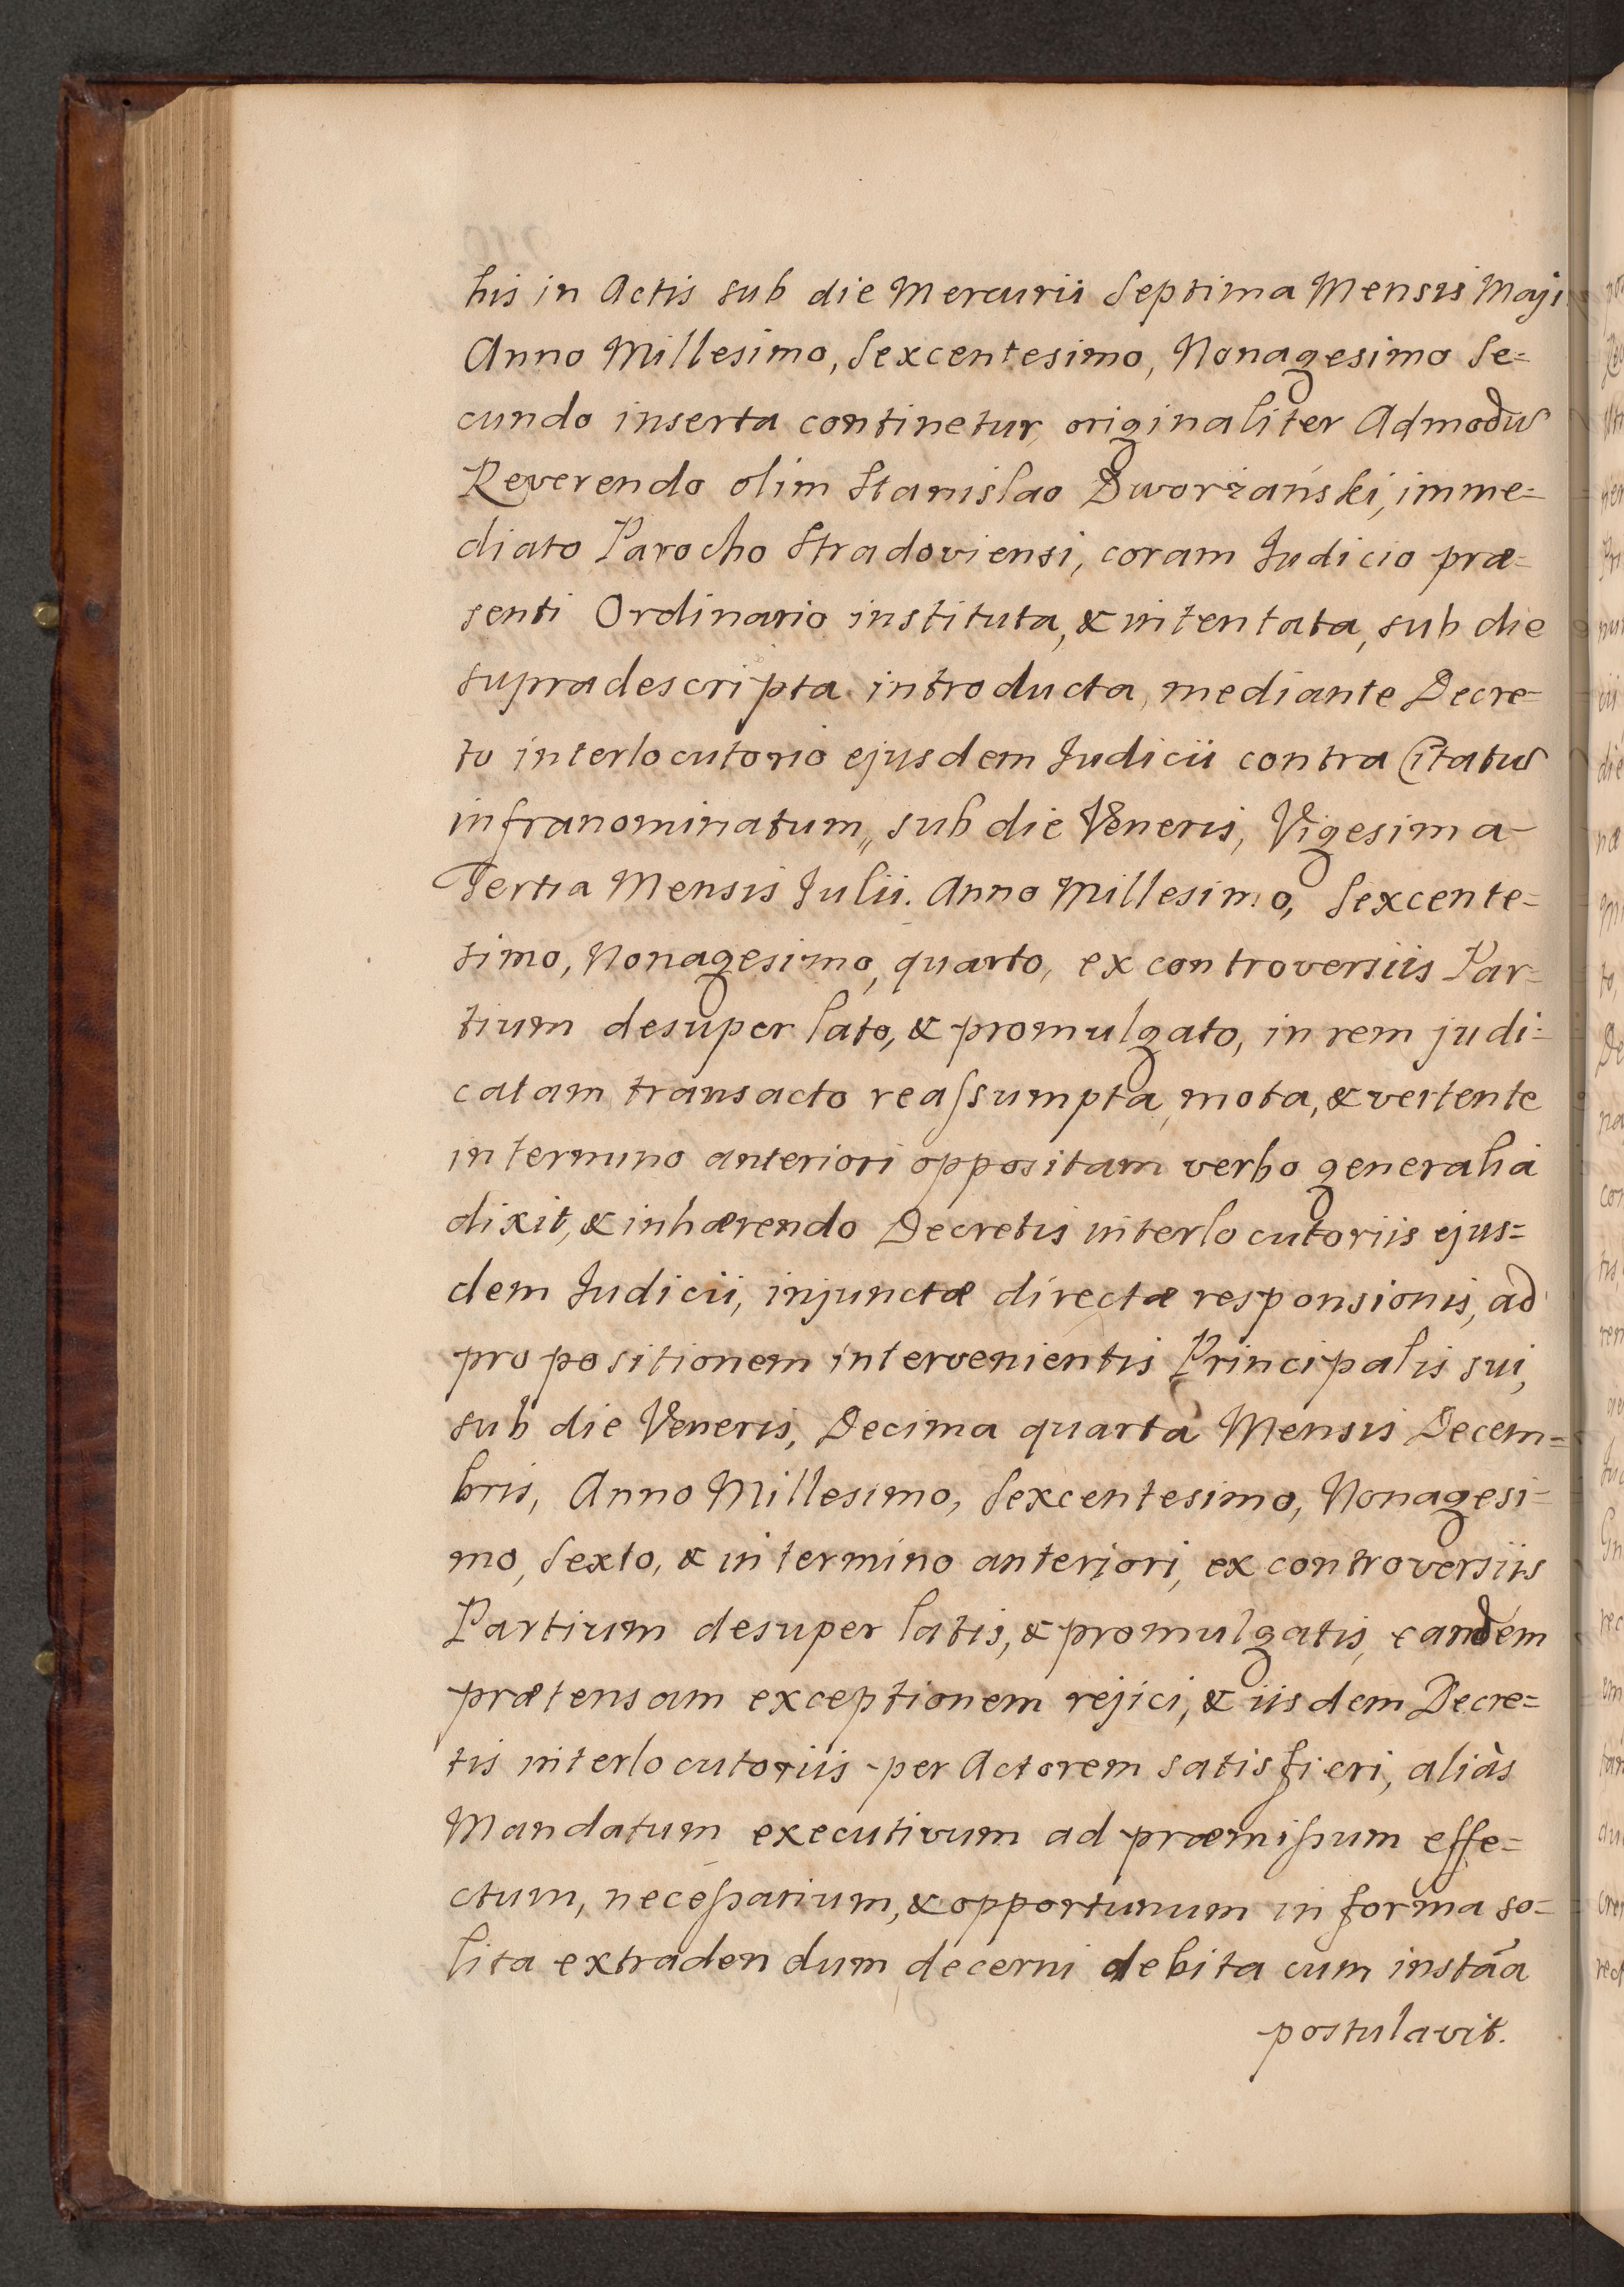 his in Actis sub die Mercurii Septima Mensis Maji
Anno Millesimo, Sexcentesimo, Nonagesimo Se=
cundo inserta continetur, originaliter Admodũ
Reverendo olim Stanislao Dworzański, imme=
diato Parocho Stradoviensi, coram Judicio præ=
senti Ordinario instituta, & intentata, sub die
supradescripta introducta, mediante Decre=
to interlocutorio ejusdem Judicii contra Citatũ
infranominatum,, sub die Veneris, Vigesima
Tertia Mensis Julii. Anno Millesimo, Sexcente=
simo, Nonagesimo, quarto, ex controversiis Par=
tium desuper lato, & promulgato, in rem judi=
catam transacto reassumpta, mota, & vertente
in termino anteriori oppositam verbo generalia
dixit, & inhærendo Decretis interlocutoriis ejus=
dem Judicii, injunctæ directæ responsionis, ad
propositionem intervenientis Principalis sui,
sub die Veneris, Decima quarta Mensis Decem=
bris, Anno Millesimo, Sexcentesimo, Nonagesi=
mo, Sexto, & in termino anteriori, ex controversiis
Partium desuper latis, & promulgatis, eandem
prætensam exceptionem rejici, & iisdem Decre=
tis interlocutoriis per Actorem satisfieri, aliàs
Mandatum executivum ad præmissum effe=
ctum, necessarium, & opportunum in forma so=
lita extradendum decerni debita cum instãa
postulavit.